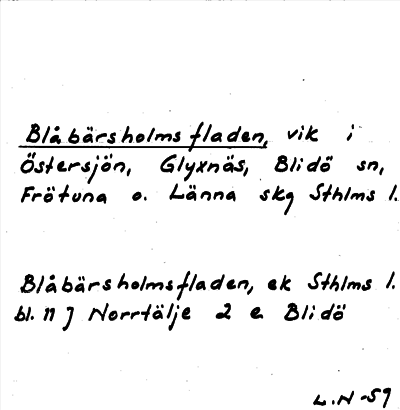 Blåbärsholmsfladen, vik i
Östersjön, Glyxnäs, Blidö sn,
Frötuna o. Länna skg Sthlms l.
Blåbärsholmsfladen, ek Sthlms l.
bl. 11 J Norrtälje 2 e Blidö
L.N-59